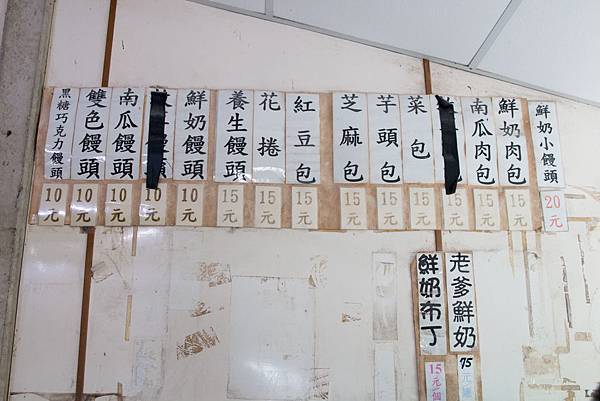 黑糖巧克力饅頭
10元
雙色饅頭
10元
南瓜饅頭
10元
饅頭
10元
鮮奶饅頭
10元
養生饅頭
15元
花捲
15元
紅豆包
15元
芝麻包
15元
芋頭包
15元
菜包
15元
包
15元
南瓜肉包
15元
鮮奶肉包
15元
鮮奶小饅頭
20元
鮮奶布丁
15元一個
老爹鮮奶
75元